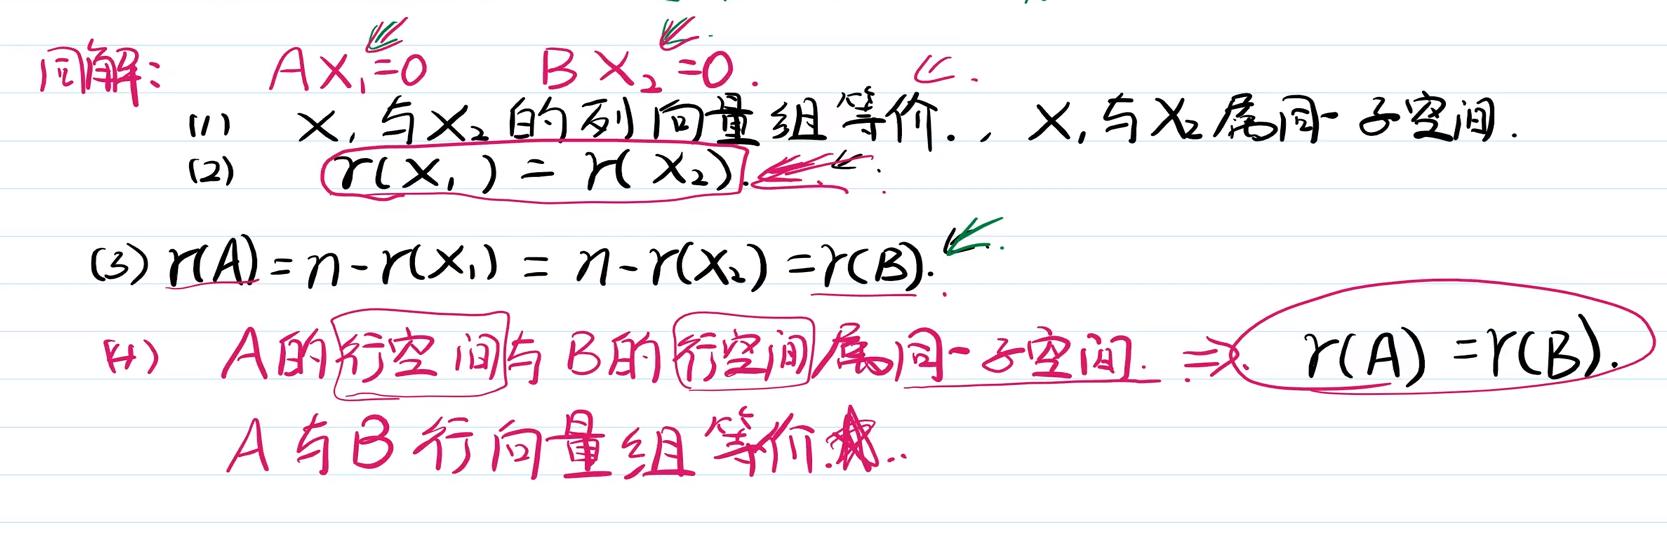 同解: AX₁=0 BX₂=0.
(1) X₁与X₂的列向量组等价., X₁与X₂属同一子空间.
(2) r(X₁) = r(X₂).
(3) r(A) = n-r(X₁) = n-r(X₂) = r(B).
(4) A的行空间与B的行空间属同一子空间. ⇒ r(A) = r(B).
A与B行向量组等价.